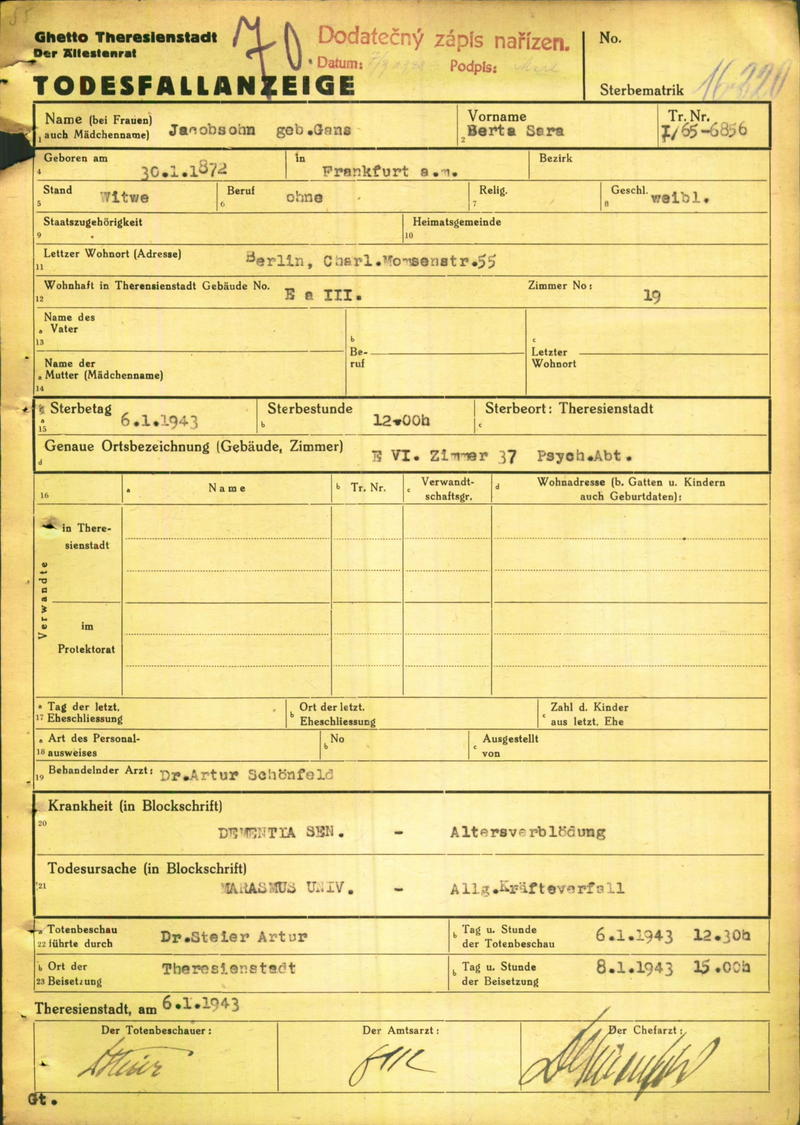 Ghetto Theresienstadt
Der Ältestenrat
TODESFALLANZEIGE
70
Dodatečný zápis nařízen.
Datum:
Podpis:
No.
Sterbematrik 16-220
Name (bei Frauen) Jacobsohn geb.Gans
1 auch Mädchenname)
Vorname
2 Berta Sara
Tr. Nr.
3 I/65-6856
Geboren am
4 30.1.1872
in
Frankfurt a.m.
Bezirk
Stand
5 Witwe
Beruf
6 ohne
Relig.
7
Geschl.
8 weibl.
Staatszugehörigkeit
9
Heimatsgemeinde
10
Lettzer Wohnort (Adresse)
11 Berlin, Charl.Momsenstr.55
Wohnhaft in Therensienstadt Gebäude No.
12 E a III.
Zimmer No: 19
Name des
a Vater
13
Name der
a Mutter (Mädchenname)
14
b
Be-
ruf
c
Letzter
Wohnort
Sterbetag
a
15 6.1.1943
Sterbestunde
b 12.00h
Sterbeort: Theresienstadt
c
Genaue Ortsbezeichnung (Gebäude, Zimmer)
d E VI. Zimmer 37 Psych.Abt.
16
a Name
b Tr. Nr.
c Verwandt-
schaftsgr.
d Wohnadresse (b. Gatten u. Kindern
auch Geburtdaten):
Verwandte
in There-
sienstadt
im
Protektorat
a Tag der letzt.
17 Eheschliessung
b Ort der letzt.
Eheschliessung
c Zahl d. Kinder
aus letzt. Ehe
a Art des Personal-
18 ausweises
b No
c Ausgestellt
von
19 Behandelnder Arzt: Dr.Artur Schönfeld
Krankheit (in Blockschrift)
20
DEMENTIA SEN. - Altersverblödung
Todesursache (in Blockschrift)
21 MARASMUS UNIV. - Allg.Kräfteverfall
a Totenbeschau
22 führte durch Dr.Steier Artur
b Tag u. Stunde
der Totenbeschau 6.1.1943 12.30h
b Ort der
23 Beisetzung Theresienstadt
b Tag u. Stunde
der Beisetzung 8.1.1943 15.00h
Theresienstadt, am 6.1.1943
Der Totenbeschauer:
Steier
Der Amtsarzt:
Der Chefarzt:
Gt.